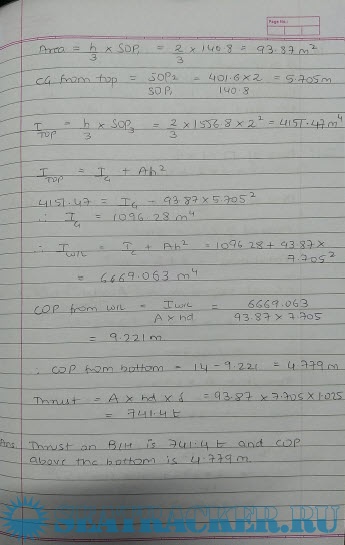 Page No.:
Area = h/3 × SOP₁ = 2/3 × 140.8 = 93.87 m²
CG from top = SOP₂/SOP₁ = 401.6 × 2/140.8 = 5.705m
I_TOP = h/3 × SOP₃ = 2/3 × 1556.8 × 2² = 4151.47 m⁴
I_TOP = I_G + Ah²
4151.47 = I_G - 93.87 × 5.705²
∴ I_G = 1096.28 m⁴
∴ I_W/L = I_G + Ah² = 1096.28 + 93.87 ×
7.705²
= 6669.063 m⁴
COP from W/L = I_W/L / A × hd = 6669.063 / 93.87 × 7.705
= 9.221 m
∴ COP from bottom = 14 - 9.221 = 4.779 m
Thrust = A × hd × δ = 93.87 × 7.705 × 1.025
= 741.4 t
Ans Thrust on B/H is 741.4 t and COP
above the bottom is 4.779m.
SEATRACKER.RU